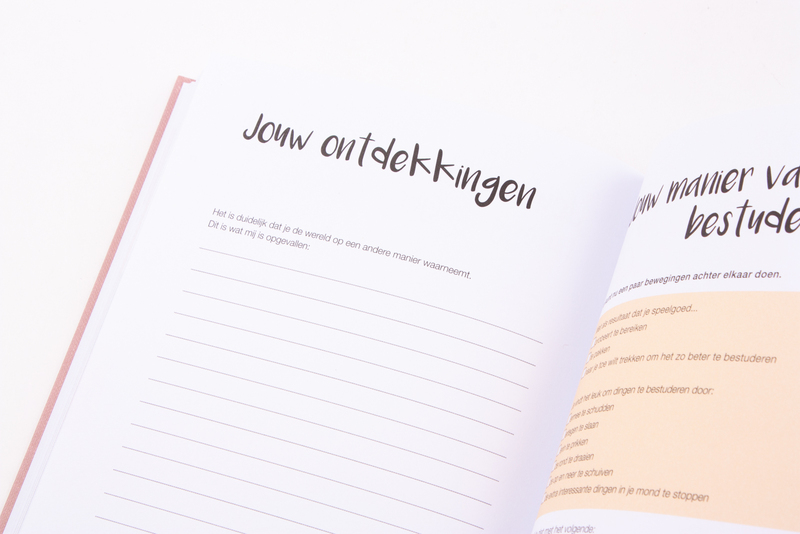 Jouw ontdekkingen
Het is duidelijk dat je de wereld op een andere manier waarneemt.
Dit is wat mij is opgevallen:
manier
een paar bewegingen achter elkaar doen.
als resultaat dat je speelgoed...
te bereiken
je toe wilt trekken om het zo beter te bestuderen
het leuk om dingen te bestuderen door:
mee te schudden
tegen te slaan
te prikken
rond te draaien
op en neer te schuiven
extra interessante dingen in je mond te stoppen
met het volgende: